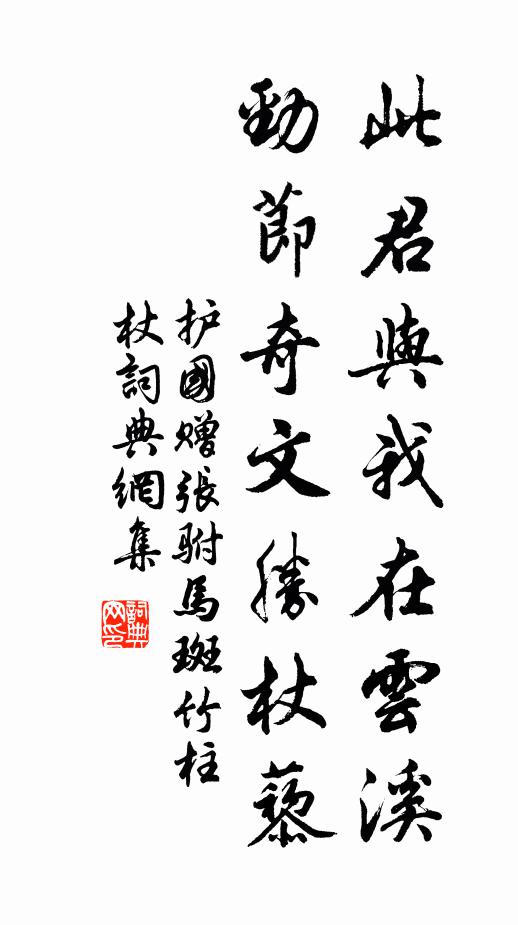 此君與我在雲溪
勁節奇文勝杖藜
护國贈張駙馬斑竹柱
杖詞典網集
詞典网印